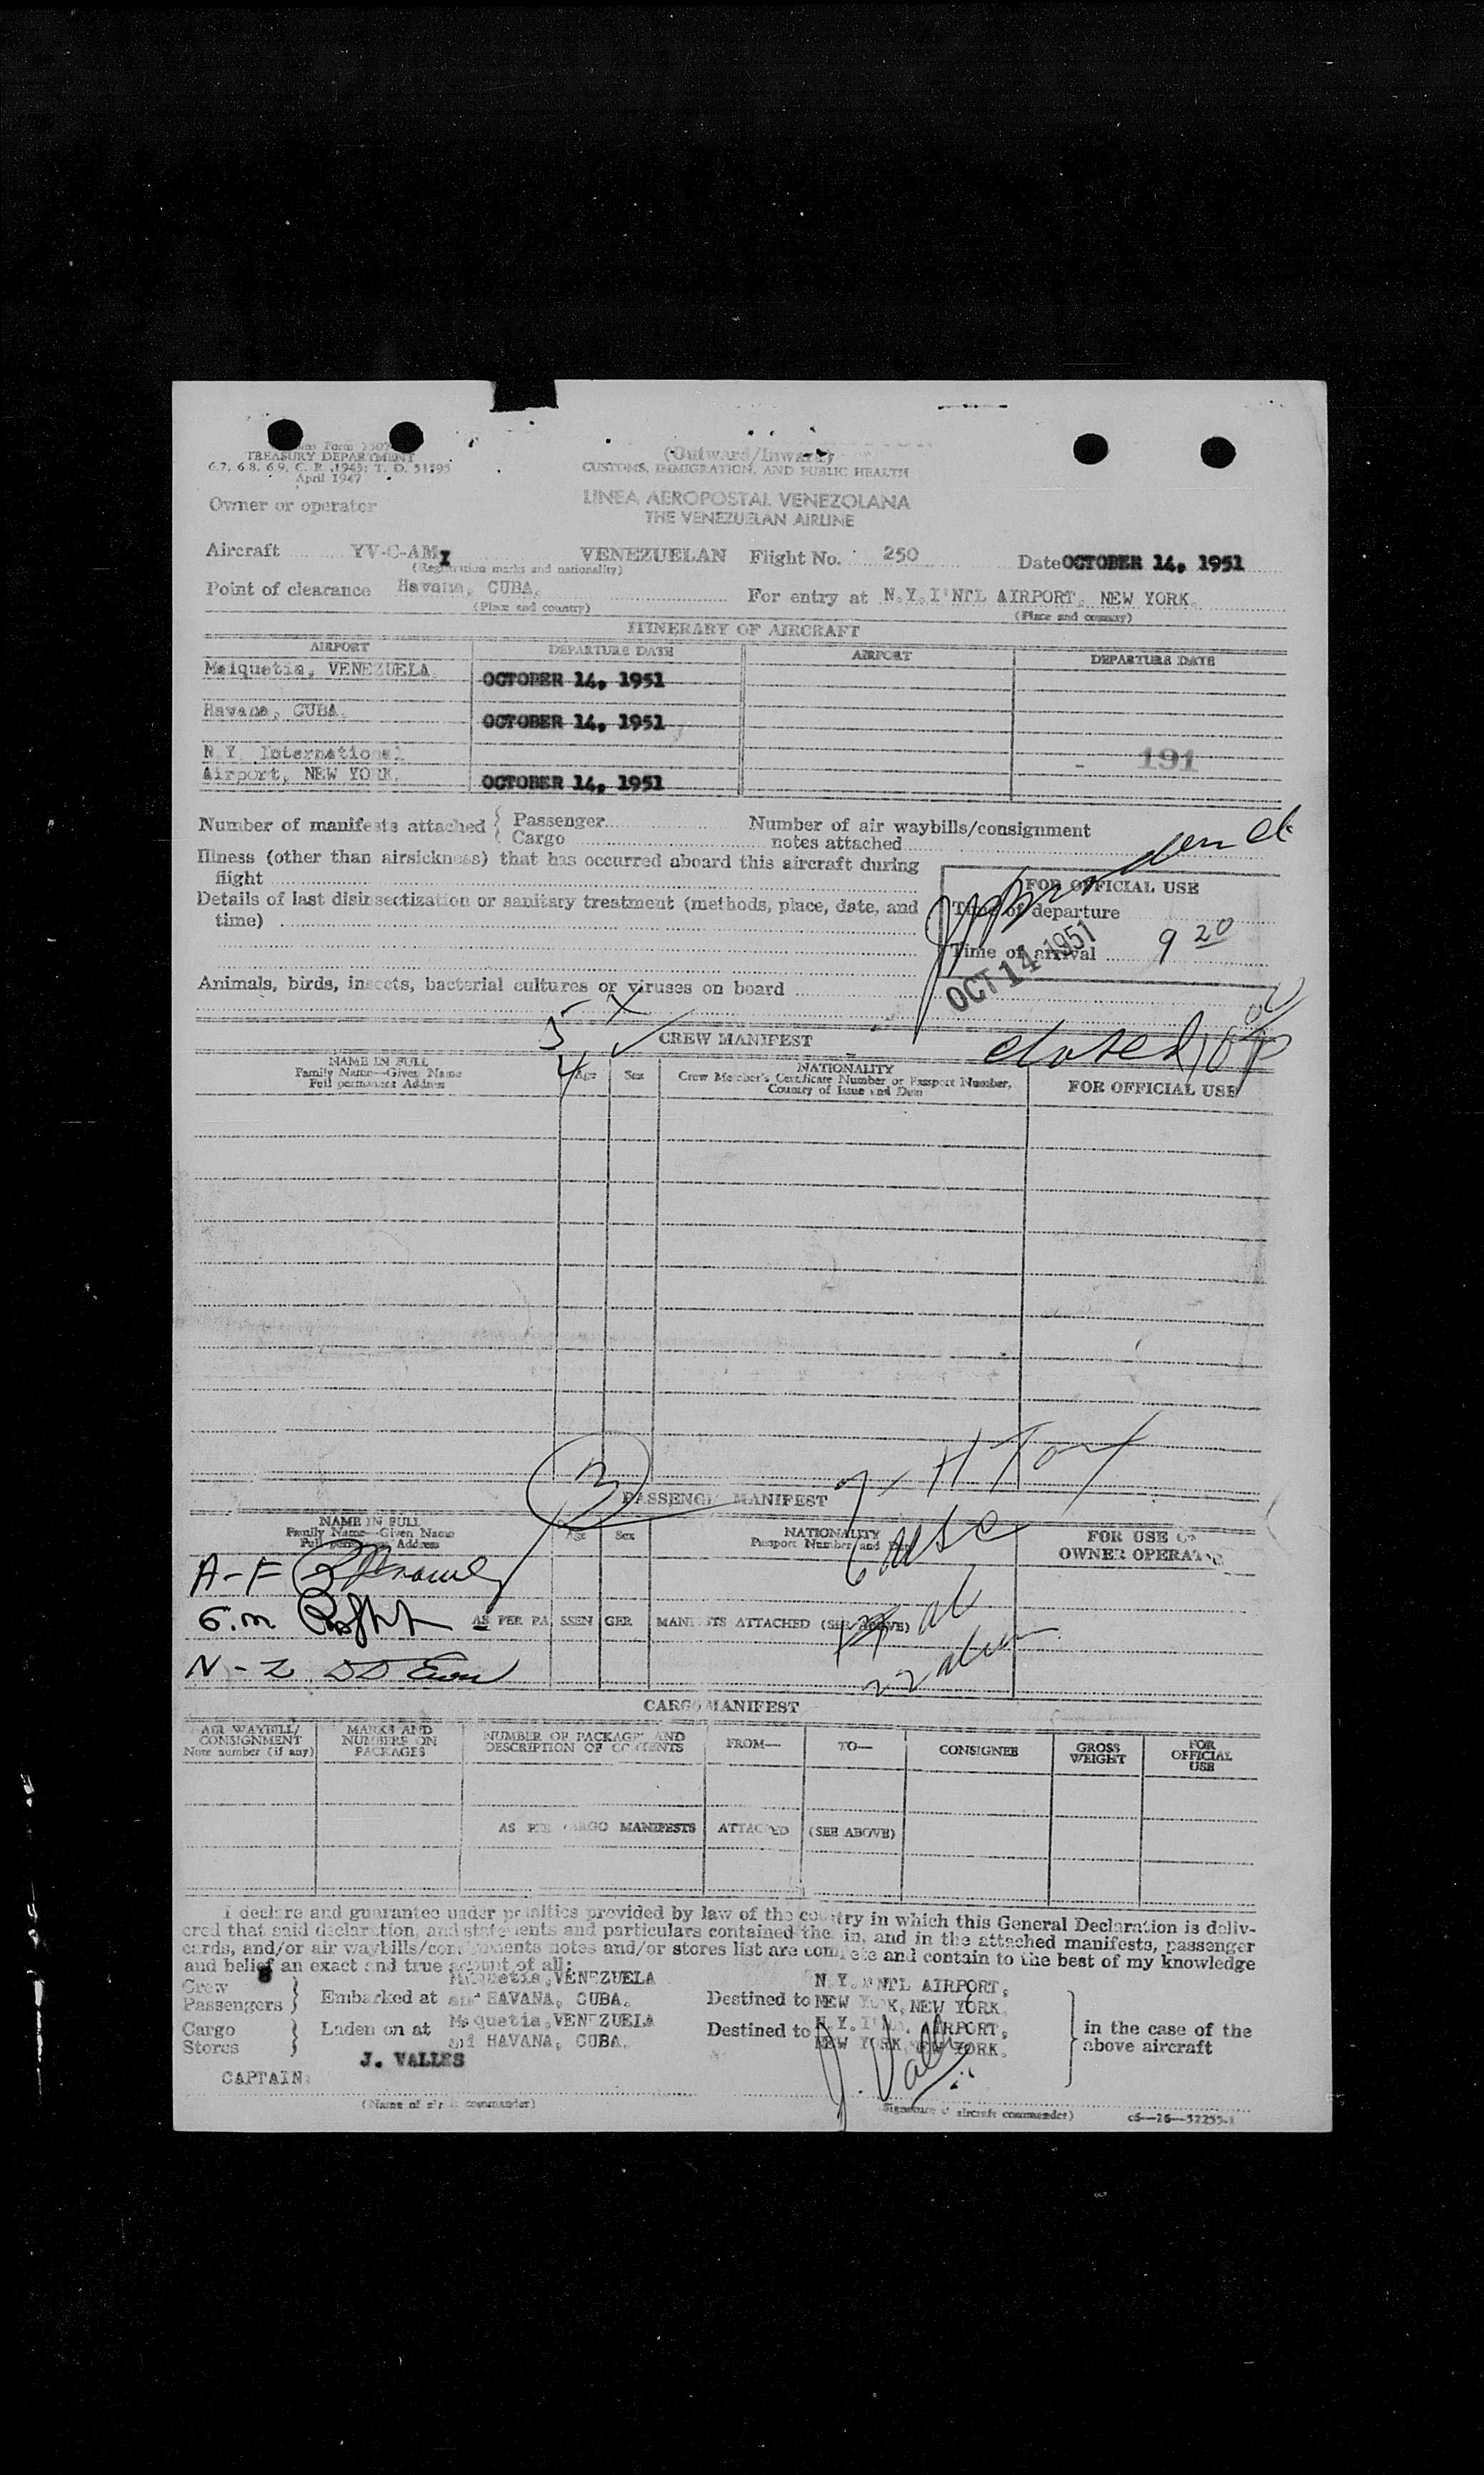 TREASURY DEPARTMENT
6.7, 6.8, 6.9, C. R. 1943; T. D. 51595
April 1947
(Outward/Inward)
CUSTOMS, IMMIGRATION, AND PUBLIC HEALTH
LINEA AEROPOSTAL VENEZOLANA
THE VENEZUELAN AIRLINE
Owner or operator
Aircraft YV-C-AMY VENEZUELAN Flight No. 250 Date OCTOBER 14, 1951
(Registration marks and nationality)
Point of clearance Havana, CUBA. For entry at N.Y.I'NTL AIRPORT, NEW YORK.
(Place and country) (Place and country)
ITINERARY OF AIRCRAFT
AIRPORT DEPARTURE DATE AIRPORT DEPARTURE DATE
Maiquetia, VENEZUELA. OCTOBER 14, 1951
Havana, CUBA. OCTOBER 14, 1951
N.Y. International
Airport, NEW YORK. OCTOBER 14, 1951
191
Number of manifests attached { Passenger
Cargo
Number of air waybills/consignment
notes attached
Illness (other than airsickness) that has occurred aboard this aircraft during
flight
Details of last disinsectization or sanitary treatment (methods, place, date, and
time)
FOR OFFICIAL USE
Time of departure
Time of arrival 9 20
OCT 14 1951
Animals, birds, insects, bacterial cultures or viruses on board
5 X
4
CREW MANIFEST
closed
NAME IN FULL
Family Name—Given Name
Full permanent Address
Age Sex
NATIONALITY
Crew Member's Certificate Number or Passport Number,
Country of Issue and Date
FOR OFFICIAL USE
PASSENGER MANIFEST
NAME IN FULL
Family Name—Given Name
Full permanent Address
Age Sex
NATIONALITY
Passport Number and Date
FOR USE OF
OWNER OPERATOR
A-F
G.M
AS PER PASSENGER MANIFESTS ATTACHED (SEE ABOVE)
N-Z
CARGO MANIFEST
AIR WAYBILL/
CONSIGNMENT
Note number (if any)
MARKS AND
NUMBERS ON
PACKAGES
NUMBER OF PACKAGES AND
DESCRIPTION OF CONTENTS
FROM— TO— CONSIGNEE
GROSS
WEIGHT
FOR
OFFICIAL
USE
AS PER CARGO MANIFESTS ATTACHED (SEE ABOVE)
I declare and guarantee under penalties provided by law of the country in which this General Declaration is deliv-
ered that said declaration, and statements and particulars contained therein, and in the attached manifests, passenger
cards, and/or air waybills/consignments notes and/or stores list are complete and contain to the best of my knowledge
and belief an exact and true account of all:
Crew
Passengers } Embarked at Maiquetia, VENEZUELA
and HAVANA, CUBA.
Destined to N.Y.I'NTL AIRPORT,
NEW YORK, NEW YORK.
Cargo
Stores } Laden on at Maiquetia, VENEZUELA
and HAVANA, CUBA.
Destined to N.Y.I'NTL. AIRPORT,
NEW YORK, NEW YORK.
in the case of the
above aircraft
J. VALLES
CAPTAIN:
J. Valles
(Name of aircraft commander)
(Signature of aircraft commander)
c6—16—52255-1